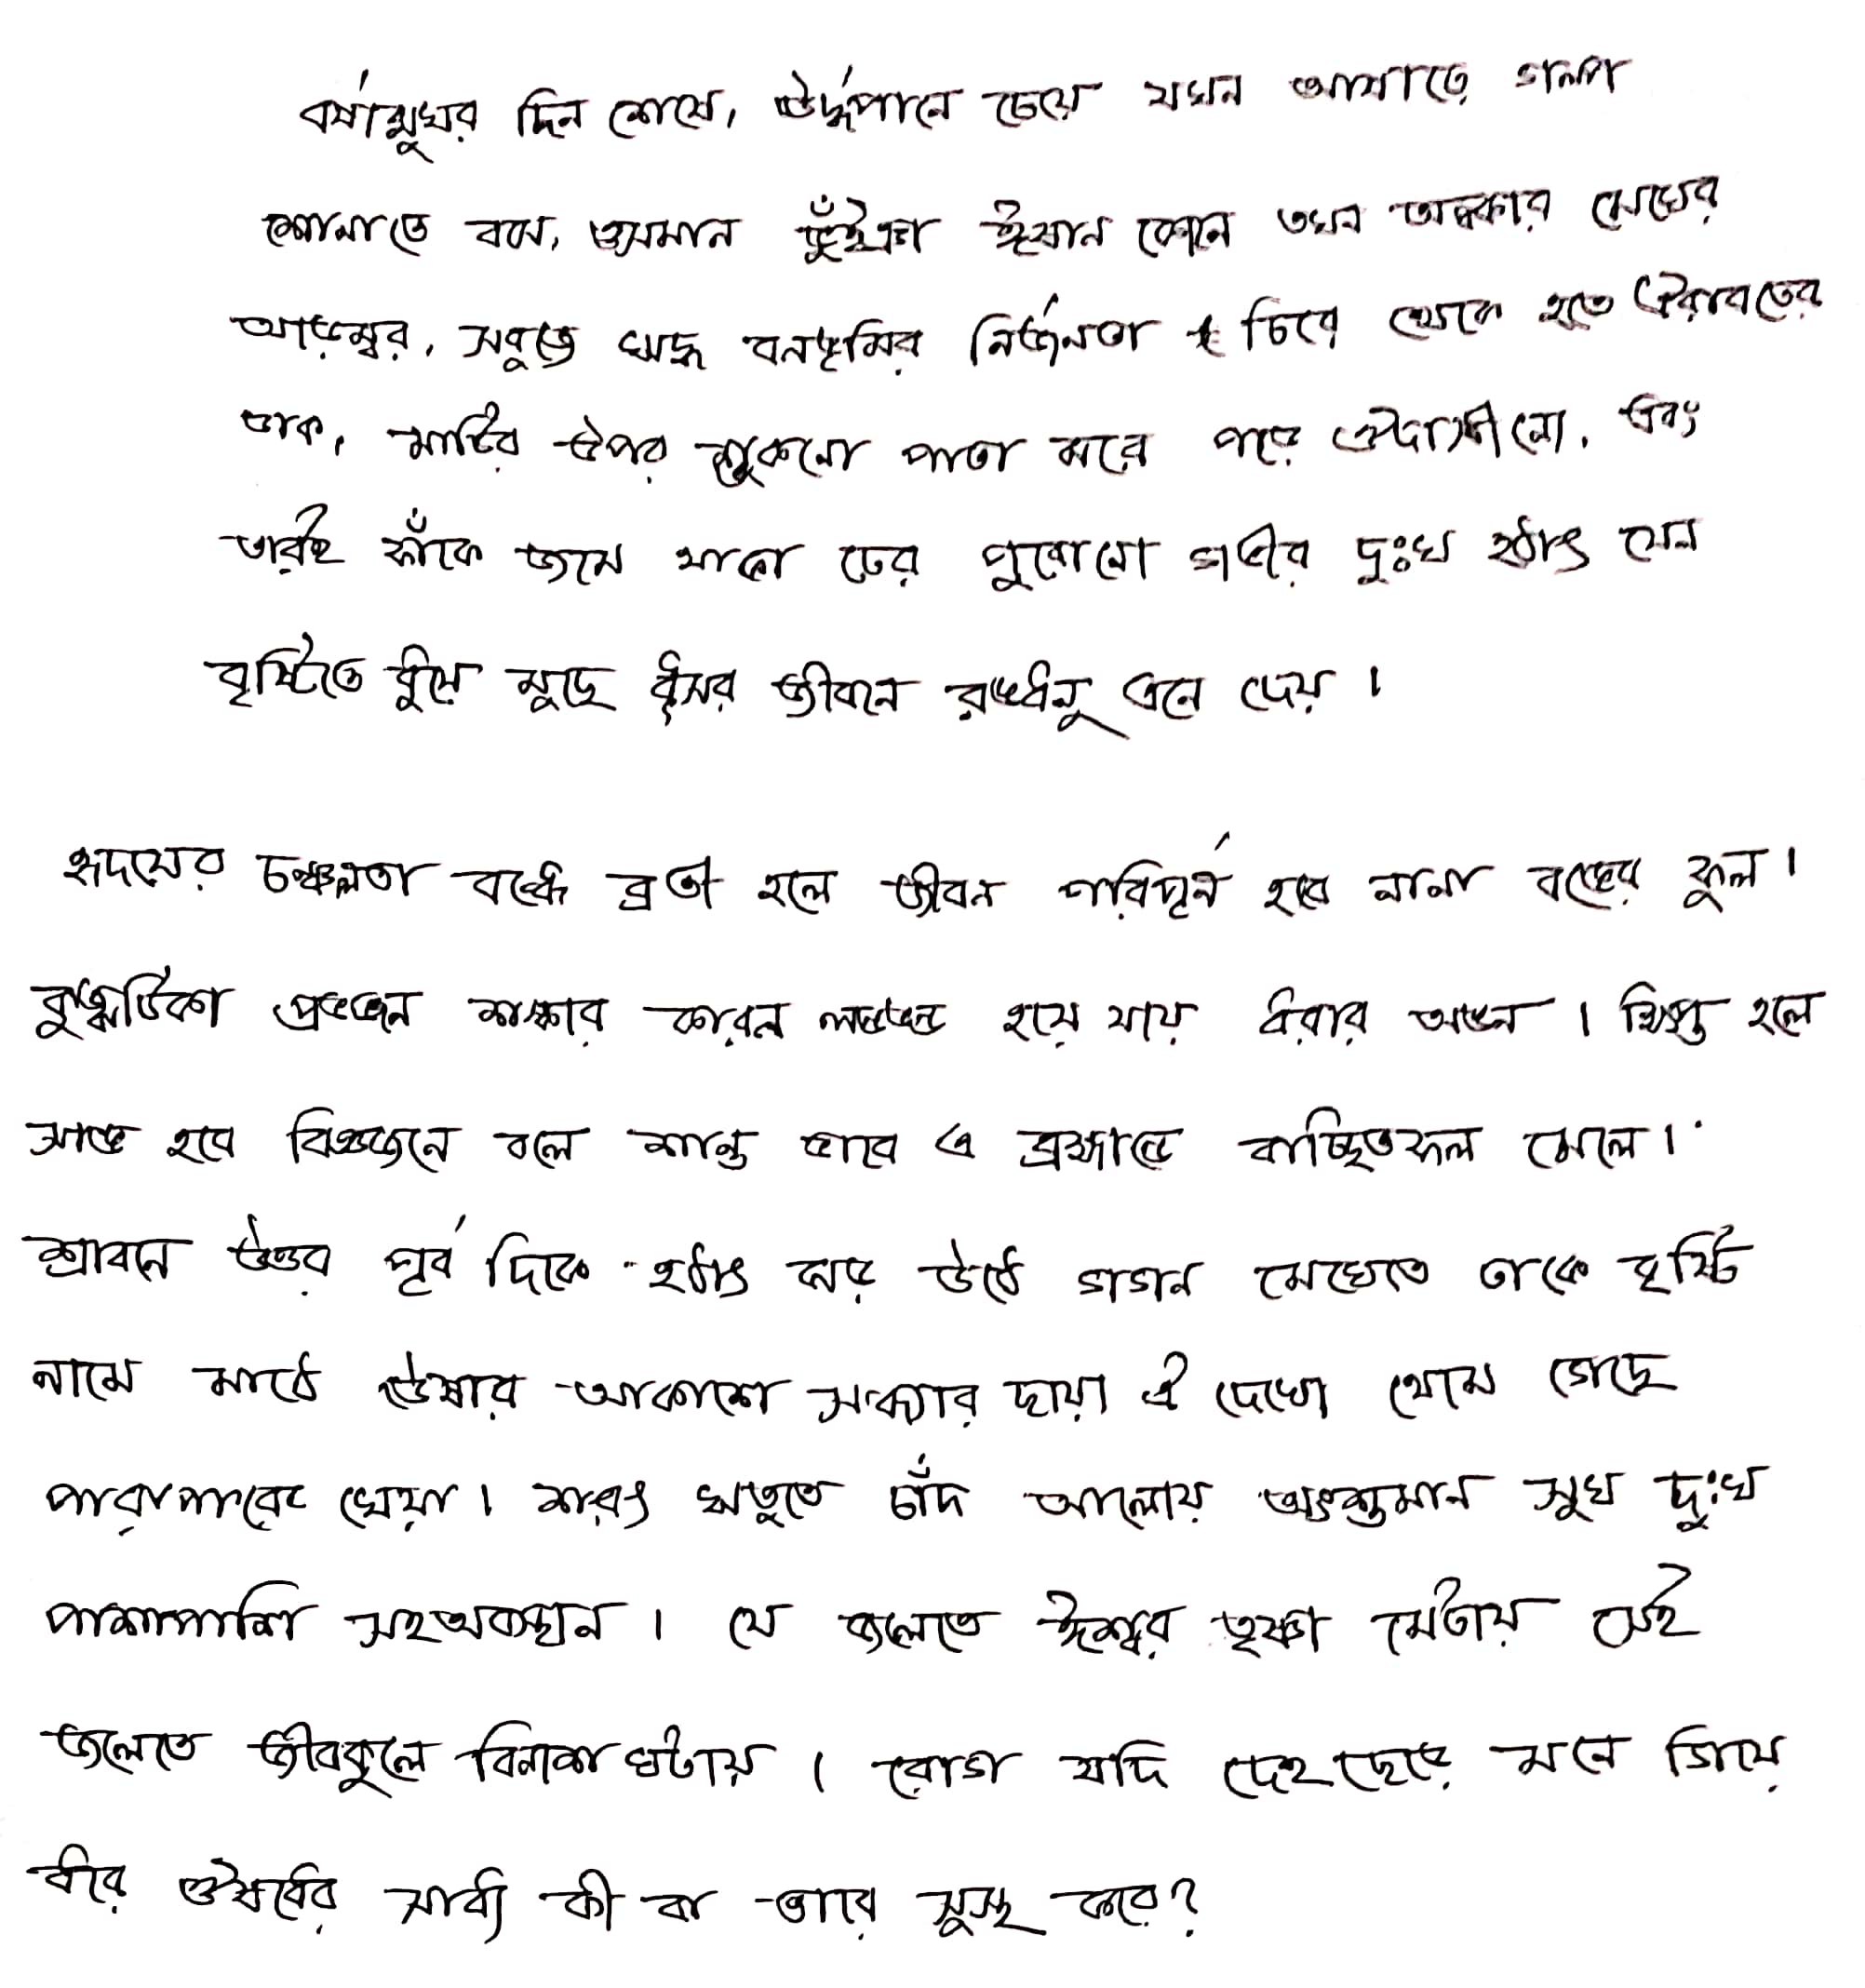 বর্ষামুখর দিন শেষে, ঊর্দ্ধপানে চেয়ে যখন আষাঢ়ে গল্প
শোনাতে বসে, ওসমান ভুঁইঞা ঈষান কোনে তখন অন্ধকার মেঘের
আড়ম্বর, সবুজে ঋদ্ধ বনভূমির নির্জনতা চিরে থেকে হতে ঐরাবতের
ডাক, মাটির উপর শুকনো পাতা ঝরে পড়ে ঔদাসীন্যে, এবং
তারই ফাঁকে জমে থাকা ঢের পুরোনো গভীর দুঃখ হঠাৎ যেন
বৃষ্টিতে ধুয়ে মুছে ধূসর জীবনে রঙধনু এনে দেয় ।
হৃদয়ের চঞ্চলতা বন্ধে ব্রতী হলে জীবন পরিপূর্ন হবে নানা রঙের ফুল ।
কুজ্ঝটিকা প্রভঞ্জন শঙ্কার কারন লণ্ডভণ্ড হয়ে যায় ধরার অঙ্গন । ক্ষিপ্ত হলে
সাঙ্গ হবে বিজ্ঞজনে বলে শান্ত ভাবে এ ব্রহ্মাণ্ডে বাঞ্ছিতফল মেলে ।
শ্রাবনে উত্তর পূর্ব দিকে হঠাৎ ঝড় উঠে গগন মেঘেতে ঢাকে বৃষ্টি
নামে মাঠে ঊষার আকাশে সন্ধ্যার ছায়া ঐ দেখো থেমে গেছে
পারাপারের খেয়া । শরৎ ঋতুতে চাঁদ আলোয় অংশুমান সুখ দুঃখ
পাশাপাশি সহঅবস্থান । যে জলেতে ঈশ্বর তৃষ্ণা মেটায় সেই
জলেতে জীবকুলে বিনাশ ঘটায় । রোগ যদি দেহ ছেড়ে মনে গিয়ে
ধরে ঔষধের সাধ্য কী বা তারে সুস্থ করে?